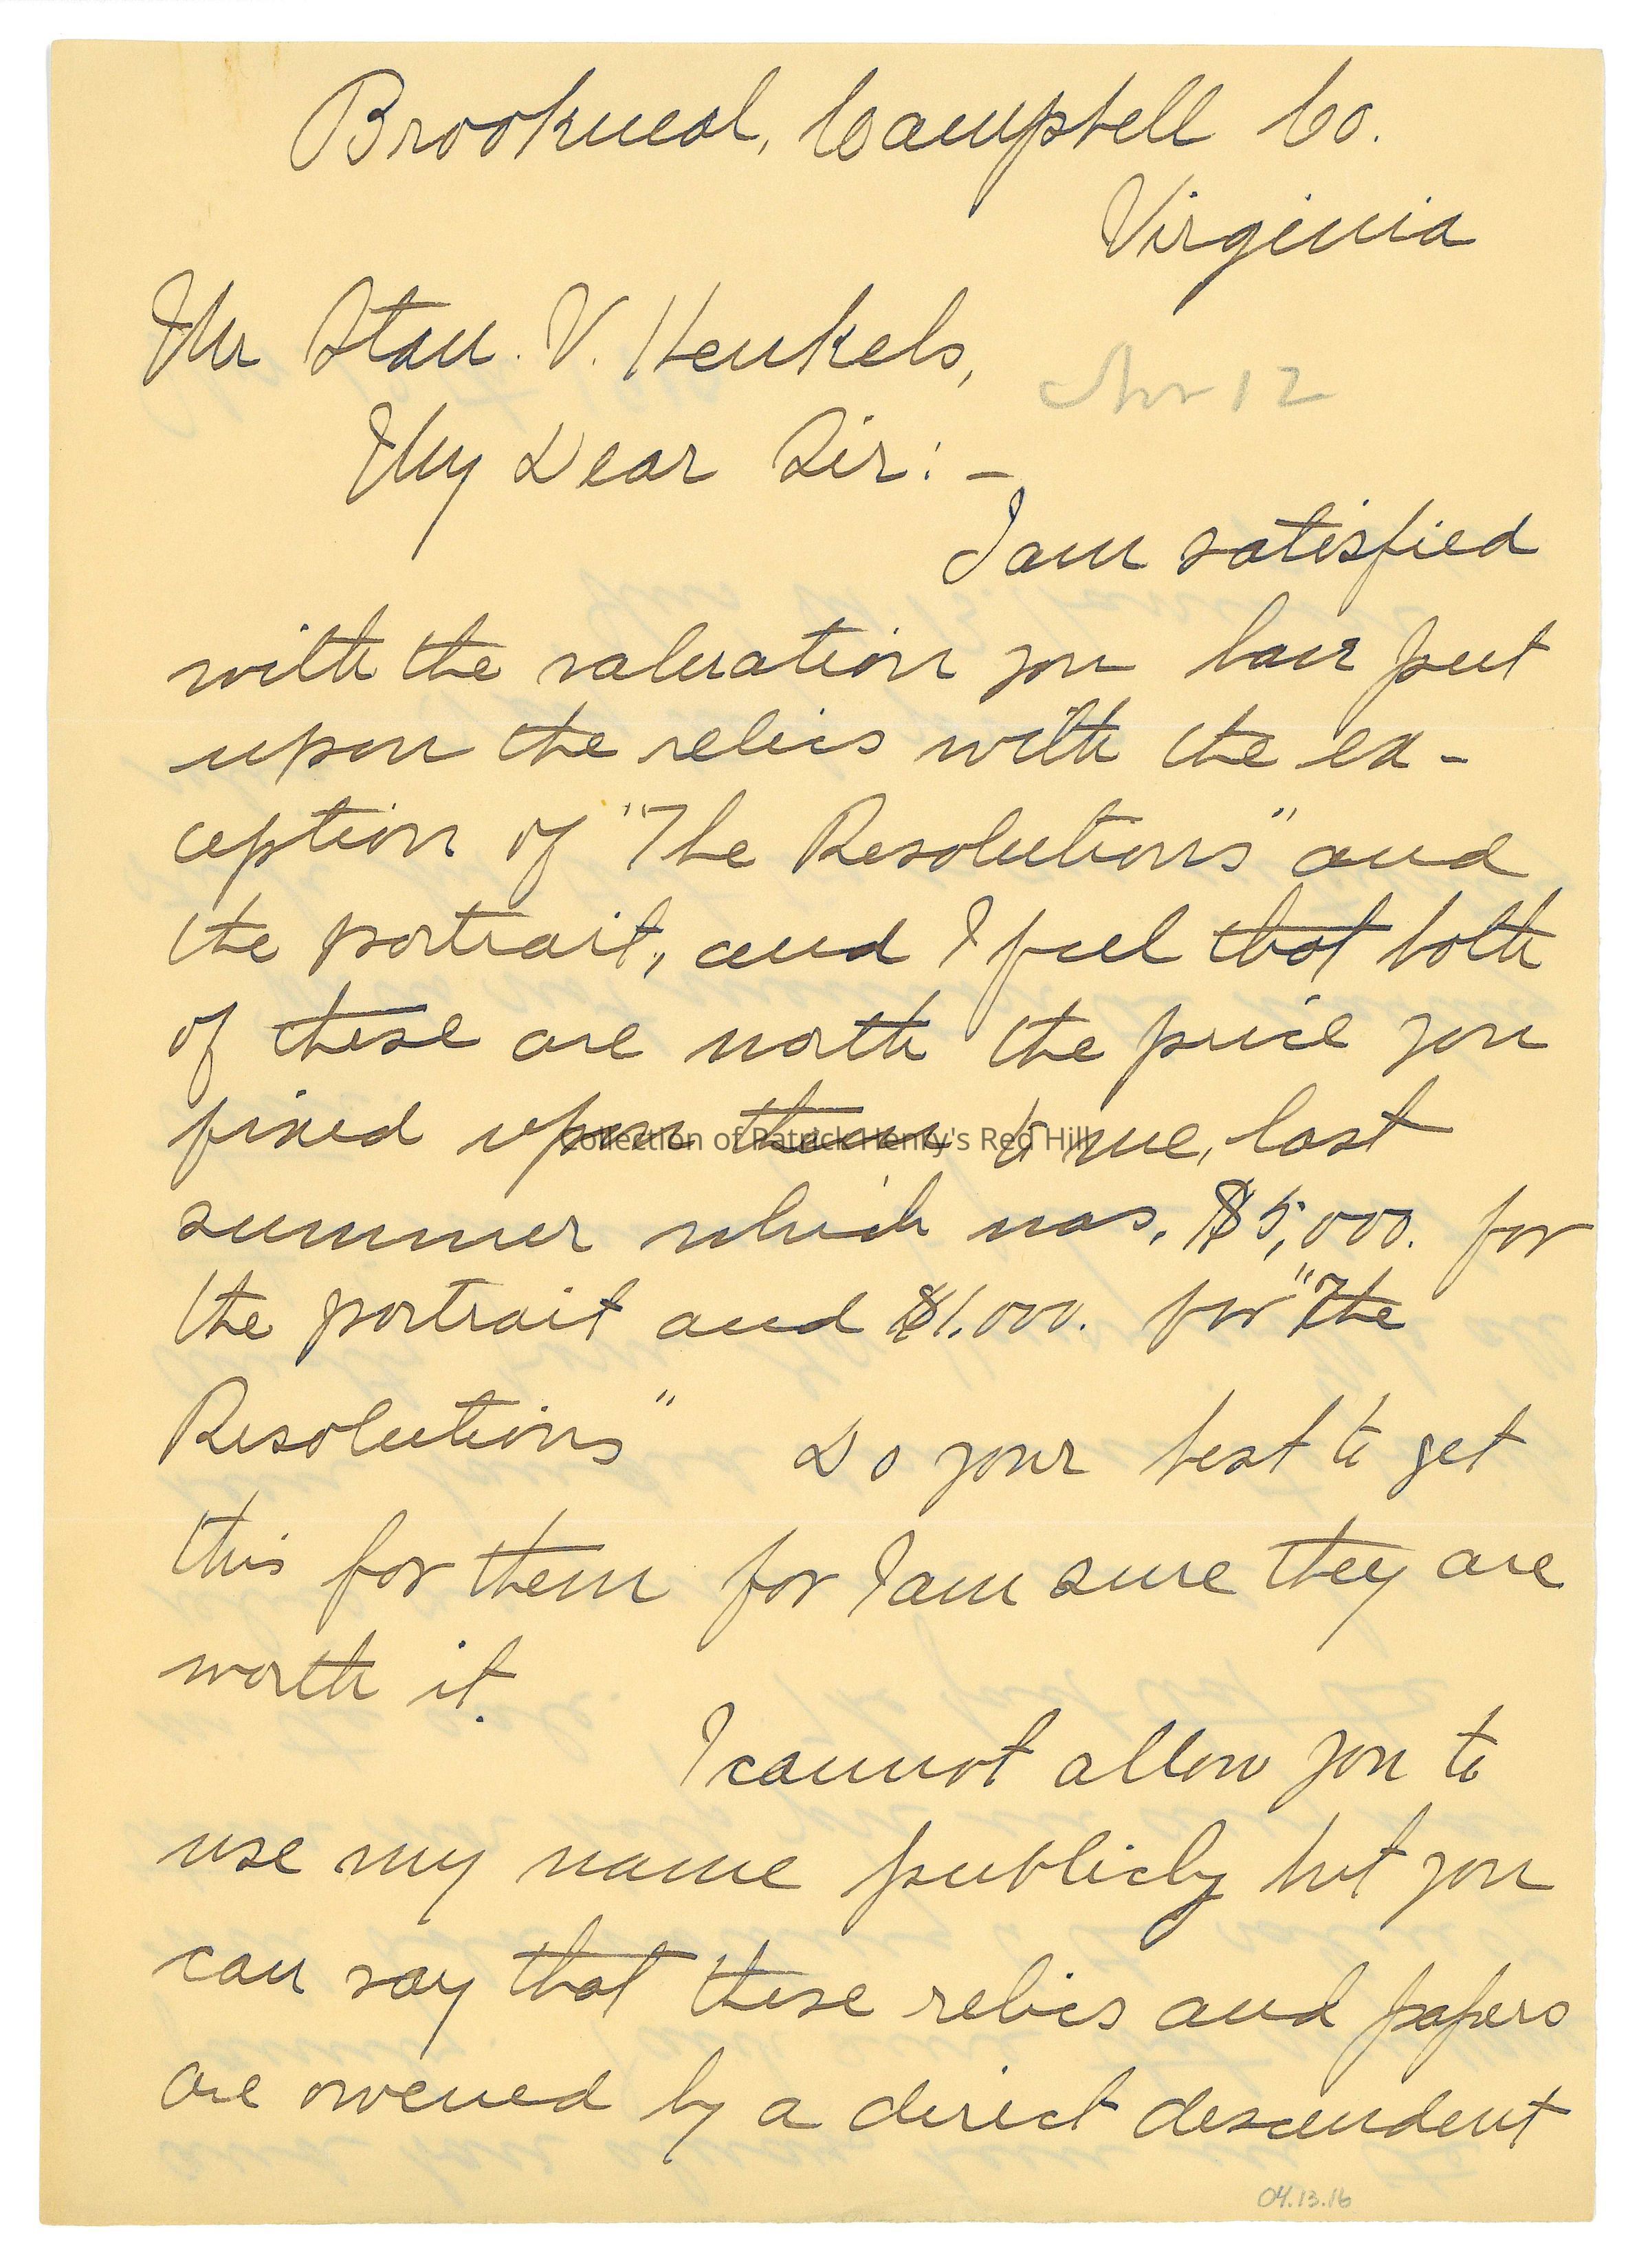 Brookneal, Campbell Co.
Virginia
Mr Stan. V. Henkels,
Nov 12
My Dear Sir: -
I am satisfied
with the valuation you have put
upon the relics with the ex-
ception of "The Resolutions" and
the portrait, and I feel that both
of these are worth the price you
fixed upon them to me, last
Collection of Patrick Henry's Red Hill
summer which was, $5,000. for
the portrait and $1,000. for "The
Resolutions" Do your best to get
this for them for I am sure they are
worth it.
I cannot allow you to
use my name publicly but you
can say that these relics and papers
are owened by a direct descendent
04.13.16